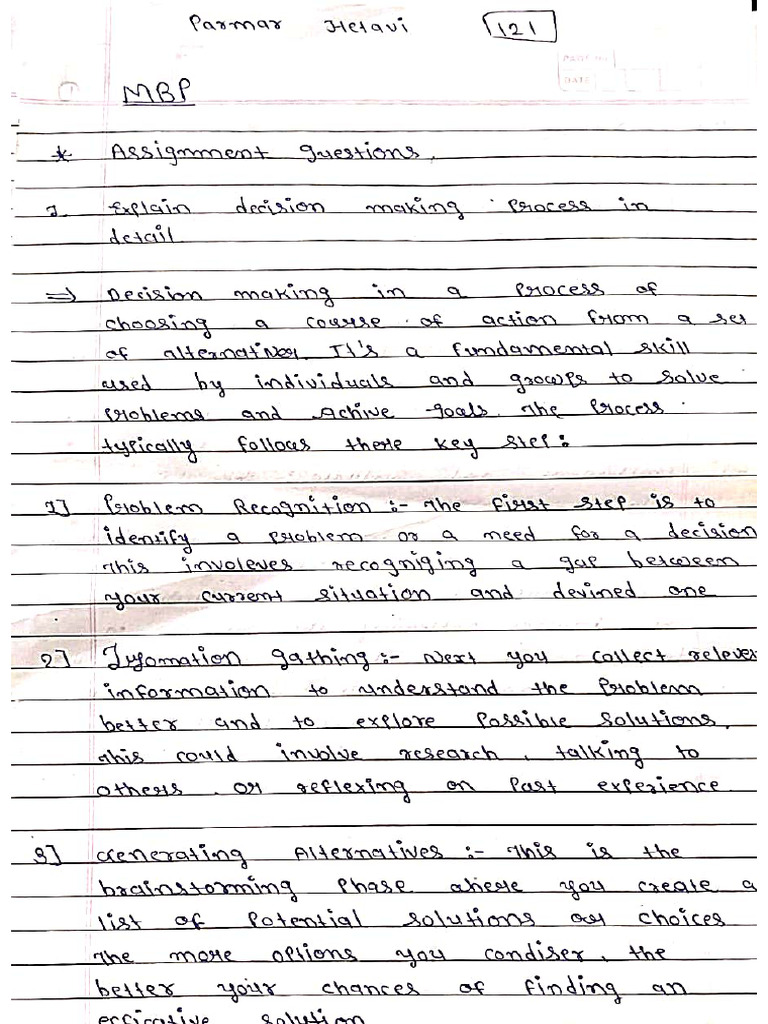 Parmar Hetavi 121
PAGE NO.
DATE
1
MBP
* Assignment questions.
1. Explain decision making process in
detail
⇒ Decision making in a process of
choosing a course of action from a set
of alternatives. It's a fundamental skill
used by individuals and groups to solve
problems and Achive goals. The process
typically follows these key step:
1] Problem Recognition :- The first step is to
identify a problem or a need for a decision
This involeves recogniging a gap between
your current situation and devined one
2] Infomation gathing :- Next you collect relever
information to understand the problem
better and to explore possible solutions.
This could involve research, talking to
others. or reflexing on past experience
3] Generating Alternatives :- This is the
brainstorming phase where you create a
list of potential solutions or choices
The more options you condiser, the
better your chances of finding an
efficative solution